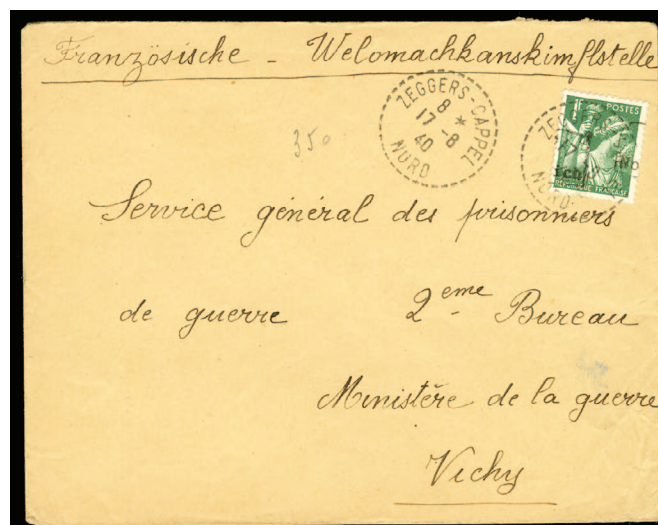 Französische - Welomachkanskimflstelle
ZEGGERS-CAPPEL
8 *
17 -8
40
NORD
1F
POSTES
REPUBLIQUE FRANÇAISE
350
Service général des prisonniers
de guerre 2eme Bureau
Ministère de la guerre
Vichy